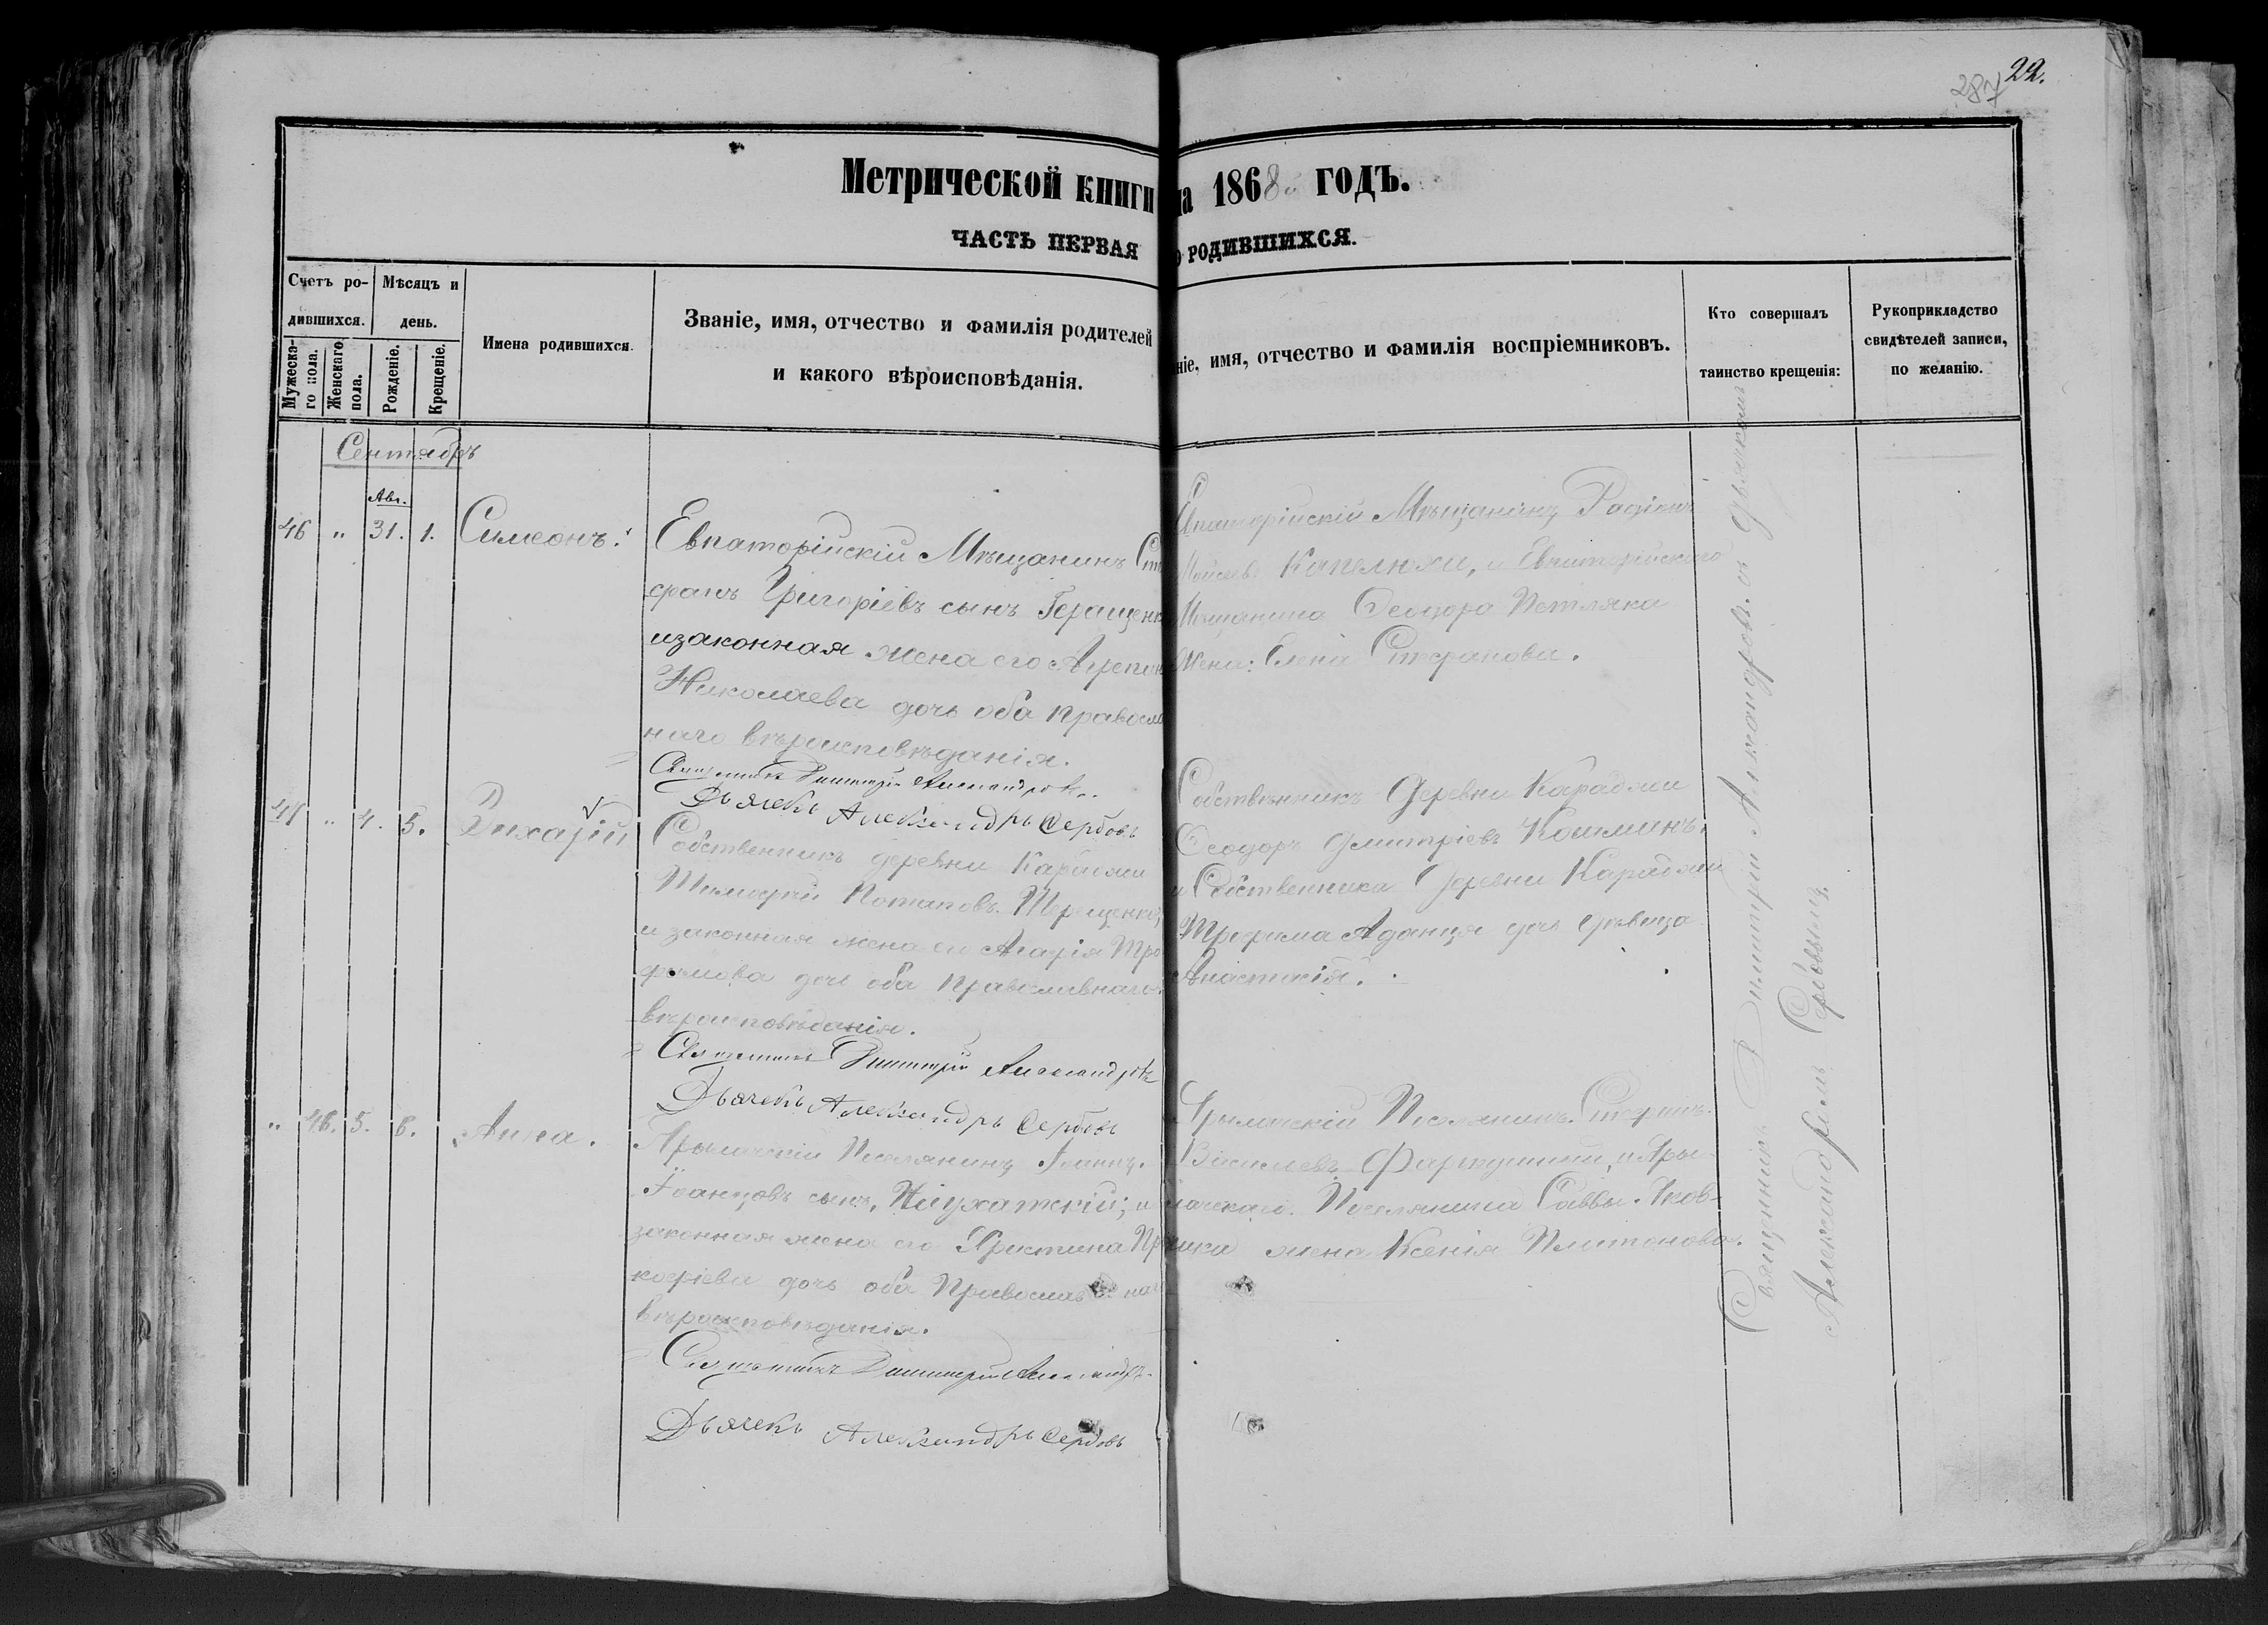 287 22.
Метрической книги на 1868 годъ.
ЧАСТЬ ПЕРВАЯ О РОДИВШИХСЯ.
Счетъ ро-
дившихся.
Мужеска-
го пола.
Женскаго
пола.
Мѣсяцъ и
день.
Рожденіе.
Крещеніе.
Имена родившихся.
Званіе, имя, отчество и фамилія родителей
и какого вѣроисповѣданія.
ніе, имя, отчество и фамилія воспріемниковъ.
Кто совершалъ
таинство крещенія:
Рукоприкладство
свидѣтелей записи,
по желанію.
Сентябрь
Авг.
46 " 31. 1. Симеонъ.
Евпаторійскій Мѣщанинъ Сте
фанъ Григоріевъ сынъ Геращенко
изаконная жена его Агрепин
Николаева дочь оба православ
наго вѣроисповѣданія.
Священникъ Димитрій Александровъ
Дьячекъ Александръ Сербовъ
Евпаторійскій Мѣщанинъ
Капелюха, и Евпаторійскаго
Мѣщанина Ѳеодора Петляка
Жена: Елена Стефанова.
" 4. 5.
Собственникъ деревни Караджи
Потаповъ Терещенко,
и законная жена его Агафія Тро
фимова дочь оба православнаго
вѣроисповѣданія.
Священникъ Димитрій Александровъ
Дьячекъ Александръ Сербовъ
Собственникъ Деревни Караджи
Ѳеодоръ Дмитріевъ Кошминъ,
и Собственника Деревни Караджи
Трофима дочь дѣвица
Анастасія.
" 46. 5. 6. Анна.
Поселянинъ Іоаннъ
Іоанновъ сынъ, и
законная жена его Христина Про
кофіева дочь оба Православнаго
вѣроисповѣданія.
Священникъ Димитрій Александровъ
Дьячекъ Александръ Сербовъ
Поселянинъ
Васильевъ и
Поселянина Саввы
жена Ксенія Платонова.
Священникъ Димитрій Александровъ съ Дьячкомъ
Александромъ Сербовымъ.